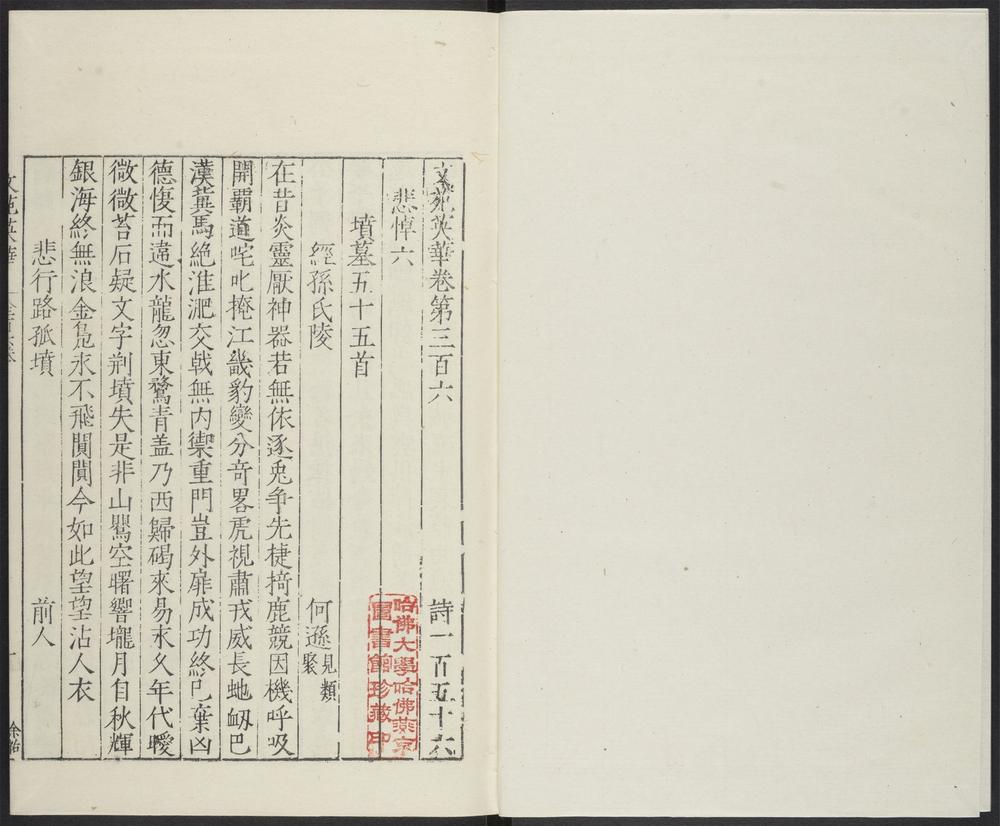 文苑英華卷第三百六 詩一百五十六
悲悼六
墳墓五十五首
經孫氏陵 何遜見類聚
在昔炎靈厭神器若無依逐兎争先捷掎鹿競因機呼吸
開霸道咤叱掩江畿豹變分竒畧虎視肅戎威長虵衂巴
漢蓂馬絶淮淝交戟無内禦重門豈外扉成功終已棄凶
德愎而違水龍忽東騖青盖乃西歸碣來易永久年代曖
微微苔石疑文字荆墳失是非山鸎空曙響壠月自秋輝
銀海終無浪金鳬永不飛闃闃今如此望望沾人衣
悲行路孤墳 前人
文苑英華
一
哈佛大學哈佛燕京圖書館珍藏印